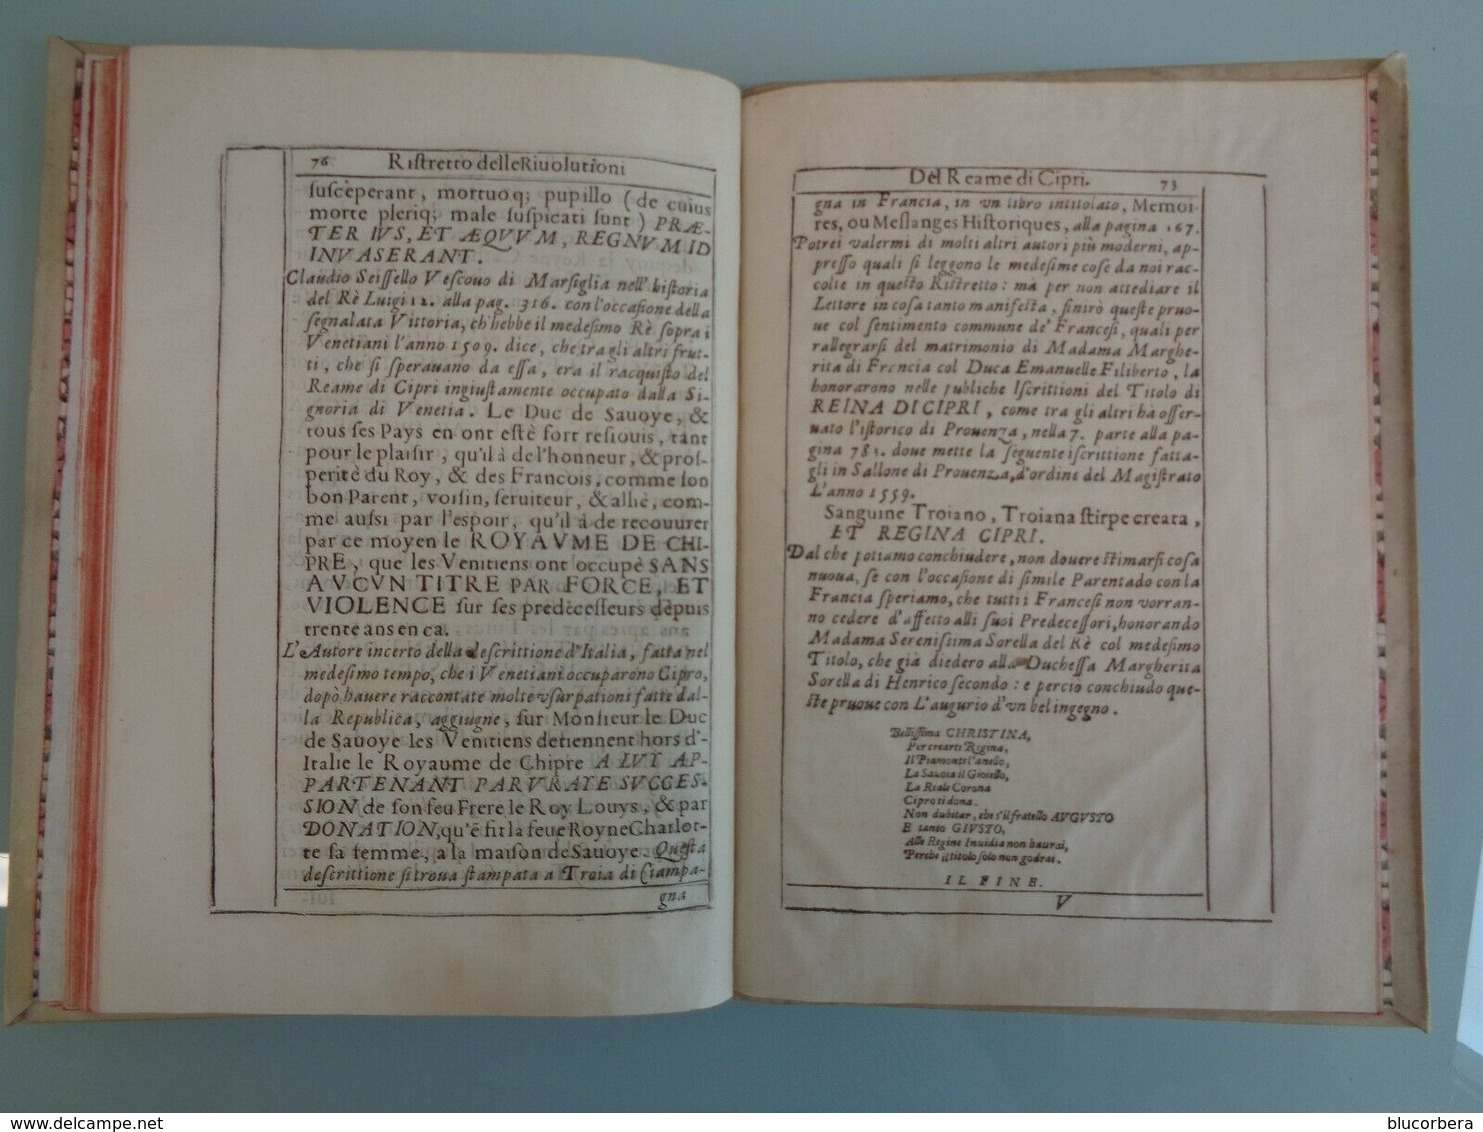 76 Ristretto delle Riuolutioni
susceperant, mortuoq; pupillo (de cuius
morte pleriq; male suspicati sunt) PRÆ-
TER IVS, ET ÆQVVM, REGNVM ID
INVASERANT.
Claudio Seissello Vescouo di Marsiglia nell'historia
del Rè Luigi 12. alla pag. 316. con l'occasione della
segnalata Vittoria, ch'hebbe il medesimo Rè sopra i
Venetiani l'anno 1509. dice, che tra gli altri frut-
ti, che si sperauano da essa, era il racquisto del
Reame di Cipri ingiustamente occupato dalla Si-
gnoria di Venetia. Le Duc de Sauoye, &
tous ses Pays en ont estè fort resiouis, tant
pour le plaisir, qu'il à de l'honneur, & pros-
peritè du Roy, & des Francois, comme son
bon Parent, voisin, seruiteur, & alliè, com-
me aussi par l'espoir, qu'il à de recouurer
par ce moyen le ROYAVME DE CHI-
PRE, que les Venitiens ont occupè SANS
AVCVN TITRE PAR FORCE, ET
VIOLENCE sur ses predecesseurs depuis
trente ans en ca.
L'Autore incerto della descrittione d'Italia, fatta nel
medesimo tempo, che i Venetiani occuparono Cipro,
dopò hauere raccontate molte vsurpationi fatte dal-
la Republica, aggiugne, sur Monsieur le Duc
de Sauoye les Venitiens detiennent hors d'-
Italie le Royaume de Chipre A LVY AP-
PARTENANT PAR VRAYE SVCCES-
SION de son feu Frere le Roy Louys, & par
DONATION, qu'ê fit la feue Royne Charlot-
te sa femme, a la maison de Sauoye. Questa
descrittione si troua stampata a Troia di Ciampa-
gna
Del Reame di Cipri. 73
gna in Francia, in vn libro intitolato, Memoi-
res, ou Meslanges Historiques, alla pagina 167.
Potrei valermi di molti altri autori più moderni, ap-
presso quali si leggono le medesime cose da noi rac-
colte in questo Ristretto: mà per non attediare il
Lettore in cosa tanto manifesta, finirò queste pruo-
ue col sentimento commune de' Francesi, quali per
rallegrarsi del matrimonio di Madama Marghe-
rita di Francia col Duca Emanuelle Filiberto, la
honorarono nelle publiche Iscrittioni del Titolo di
REINA DI CIPRI, come tra gli altri hà osser-
uato l'istorico di Prouenza, nella 7. parte alla pa-
gina 781. doue mette la seguente iscrittione fatta-
gli in Sallone di Prouenza, d'ordine del Magistrato
L'anno 1559.
Sanguine Troiano, Troiana stirpe creata,
ET REGINA CIPRI.
Dal che potiamo conchiudere, non douere stimarsi cosa
nuoua, se con l'occasione di simile Parentado con la
Francia speriamo, che tutti i Francesi non vorran-
no cedere d'affetto alli suoi Predecessori, honorando
Madama Serenissima Sorella del Rè col medesimo
Titolo, che già diedero alla Duchessa Margherita
Sorella di Henrico secondo: e percio conchiudo que-
ste pruoue con L'augurio d'vn bel ingegno.
Bellissima CHRISTINA,
Per crearti Regina,
Il Piamonte l'anello,
La Sauoia il Gioiello,
La Reale Corona
Cipro ti dona.
Non dubitar, che s'il fratello AVGVSTO
E tanto GIVSTO,
Alle Regine Inuidia non haurai,
Perche il titolo solo non godrai.
IL FINE.
V
delcampe.net
blucorbera